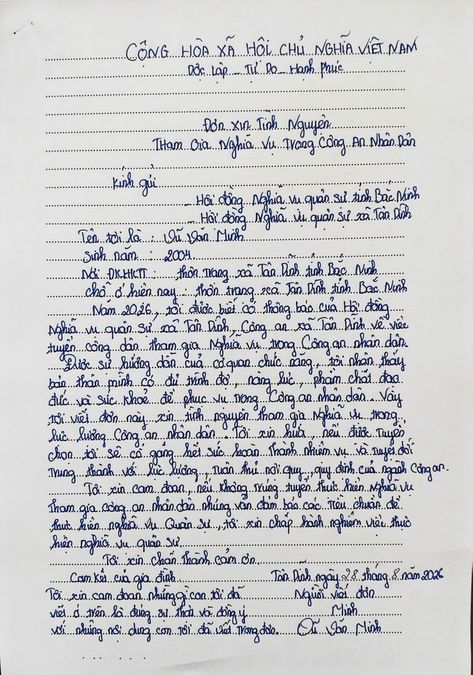 CỘNG HÒA XÃ HỘI CHỦ NGHĨA VIỆT NAM
Độc lập - Tự Do - Hạnh Phúc
Đơn xin Tình Nguyện
Tham Gia Nghĩa Vụ Trong Công An Nhân Dân
Kính gửi
- Hội đồng Nghĩa vụ quân sự tỉnh Bắc Ninh
- Hội đồng Nghĩa vụ quân sự xã Tân Dĩnh
Tên tôi là : Vũ Văn Minh
Sinh năm : 2004
Nơi ĐKHKTT : thôn Trang xã Tân Dĩnh tỉnh Bắc Ninh
chỗ ở hiện nay : thôn trang xã Tân Dĩnh tỉnh Bắc Ninh
Năm 2026, tôi được biết có thông báo của Hội đồng
Nghĩa vụ quân sự xã Tân Dĩnh, Công an xã Tân Dĩnh về việc
tuyển công dân tham gia Nghĩa vụ trong Công an nhân dân.
Được sự hướng dẫn của cơ quan chức năng, tôi nhận thấy
bản thân mình có đủ trình độ, năng lực, phẩm chất đạo
đức và sức khoẻ để phục vụ trong Công an nhân dân. Vậy
tôi viết đơn này xin tình nguyện tham gia Nghĩa vụ trong
lực lượng Công an nhân dân. Tôi xin hứa, nếu được Tuyển
chọn tôi sẽ cố gắng hết sức hoàn Thành nhiệm vụ và Tuyệt đối
Trung thành với lực lượng, tuân thủ nội quy, quy định của ngành Công an.
Tôi xin cam đoan, nếu không trúng tuyển thực hiện nghĩa vụ
tham gia công an nhân dân nhưng vẫn đảm bảo các Tiêu chuẩn để
thực hiện nghĩa vụ Quân sự, tôi xin chấp hành nghiêm việc thực
hiện nghĩa vụ quân sự
Tôi xin chân thành cảm ơn.
Cam kết của gia đình Tân Dĩnh ngày 28 tháng 8 năm 2026
Tôi xin cam đoan những gì con tôi đã Người viết đơn
viết ở trên là đúng sự thật và đồng ý Minh
với những nội dung con tôi đã viết Trong đơn. Vũ Văn Minh